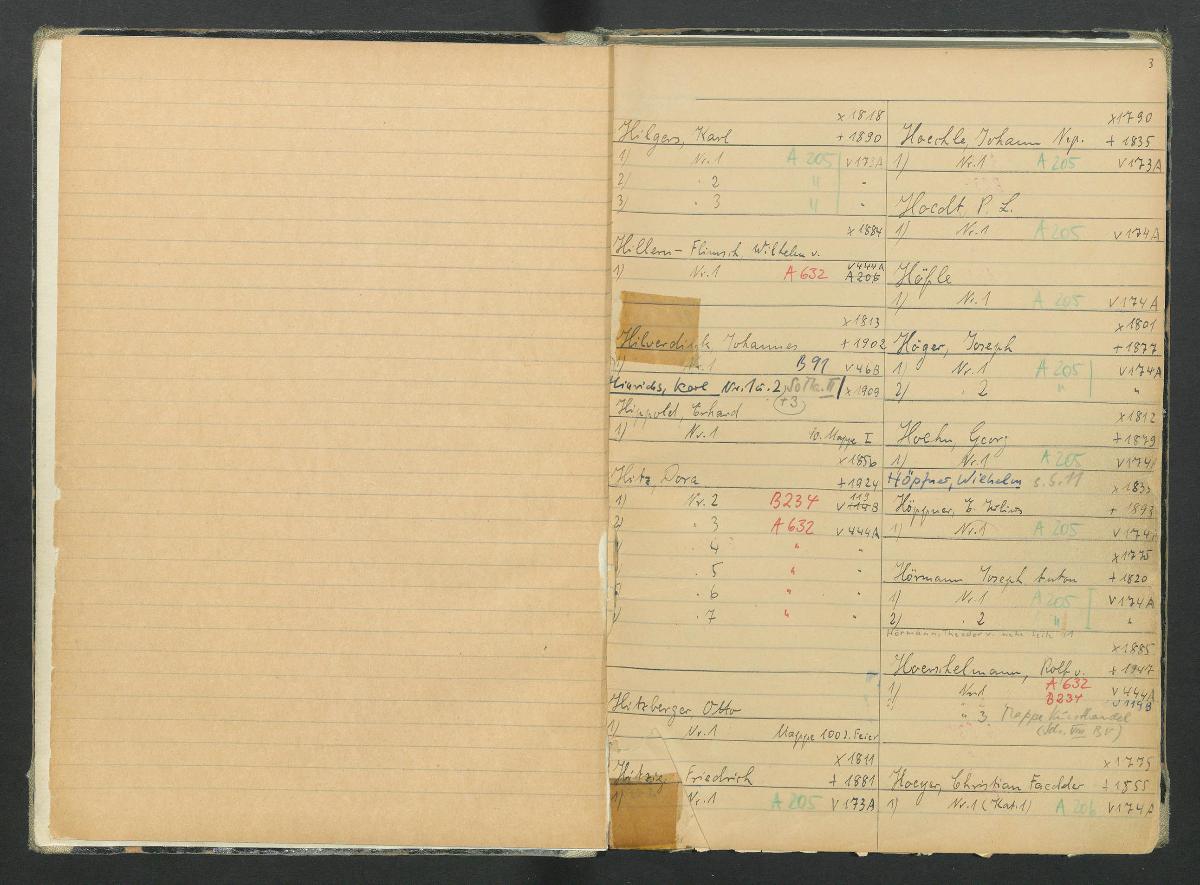 3
x 1818
Hilgers, Karl + 1890
1) Nr. 1 A 205 V 173A
2) " 2 " "
3) " 3 " "
x 1884
Hillern-Flinsch, Wilhelm v.
1) Nr. 1 A 632 V 444A
A 205
x 1813
Hilverdink Johannes + 1902
1) Nr. 1 B 91 V 46B
Hinrichs, Karl Nr. 1 u. 2, x 1909
+3
Hippold, Erhard
1) Nr. 1 10. Mappe I
x 1856
Hitz, Dora + 1924
119
1) Nr. 2 B 234 V 118B
2) " 3 A 632 V 444A
" 4 " "
" 5 " "
" 6 " "
" 7 " "
Hitzberger Otto
1) Nr. 1 Mappe 100 J. Feier
x 1811
Hitzig, Friedrich + 1881
1) Nr. 1 A 205 V 173A
x 1790
Hoechle, Johann Nep. + 1835
1) Nr. 1 A 205 V 173A
Hoedt, P. L.
1) Nr. 1 A 205 V 174A
Höfle
1) Nr. 1 A 205 V 174A
x 1801
Höger, Joseph + 1877
1) Nr. 1 A 205 V 174A
2) " 2 " "
x 1812
Hoehn, Georg + 1879
1) Nr. 1 A 205 V 174
Höpfner, Wilhelm s. S. 11
x 1835
Höppner, E. Julius + 1893
1) Nr. 1 A 205 V 174
x 1775
Hörmann Joseph Anton + 1820
1) Nr. 1 A 205 V 174A
2) " 2 " "
Hörmann, Theodor v. siehe Seite 11
x 1885
Hoerschelmann, Rolf v. + 1947
1) Nr. 1 A 632 V 444A
B 234 V 119B
" 3. Mappe Kunsthandel
(Sch. VIII B V)
x 1775
Hoeyer, Christian Faedder + 1855
1) Nr. 1 (Kat. 1) A 206 V 174A